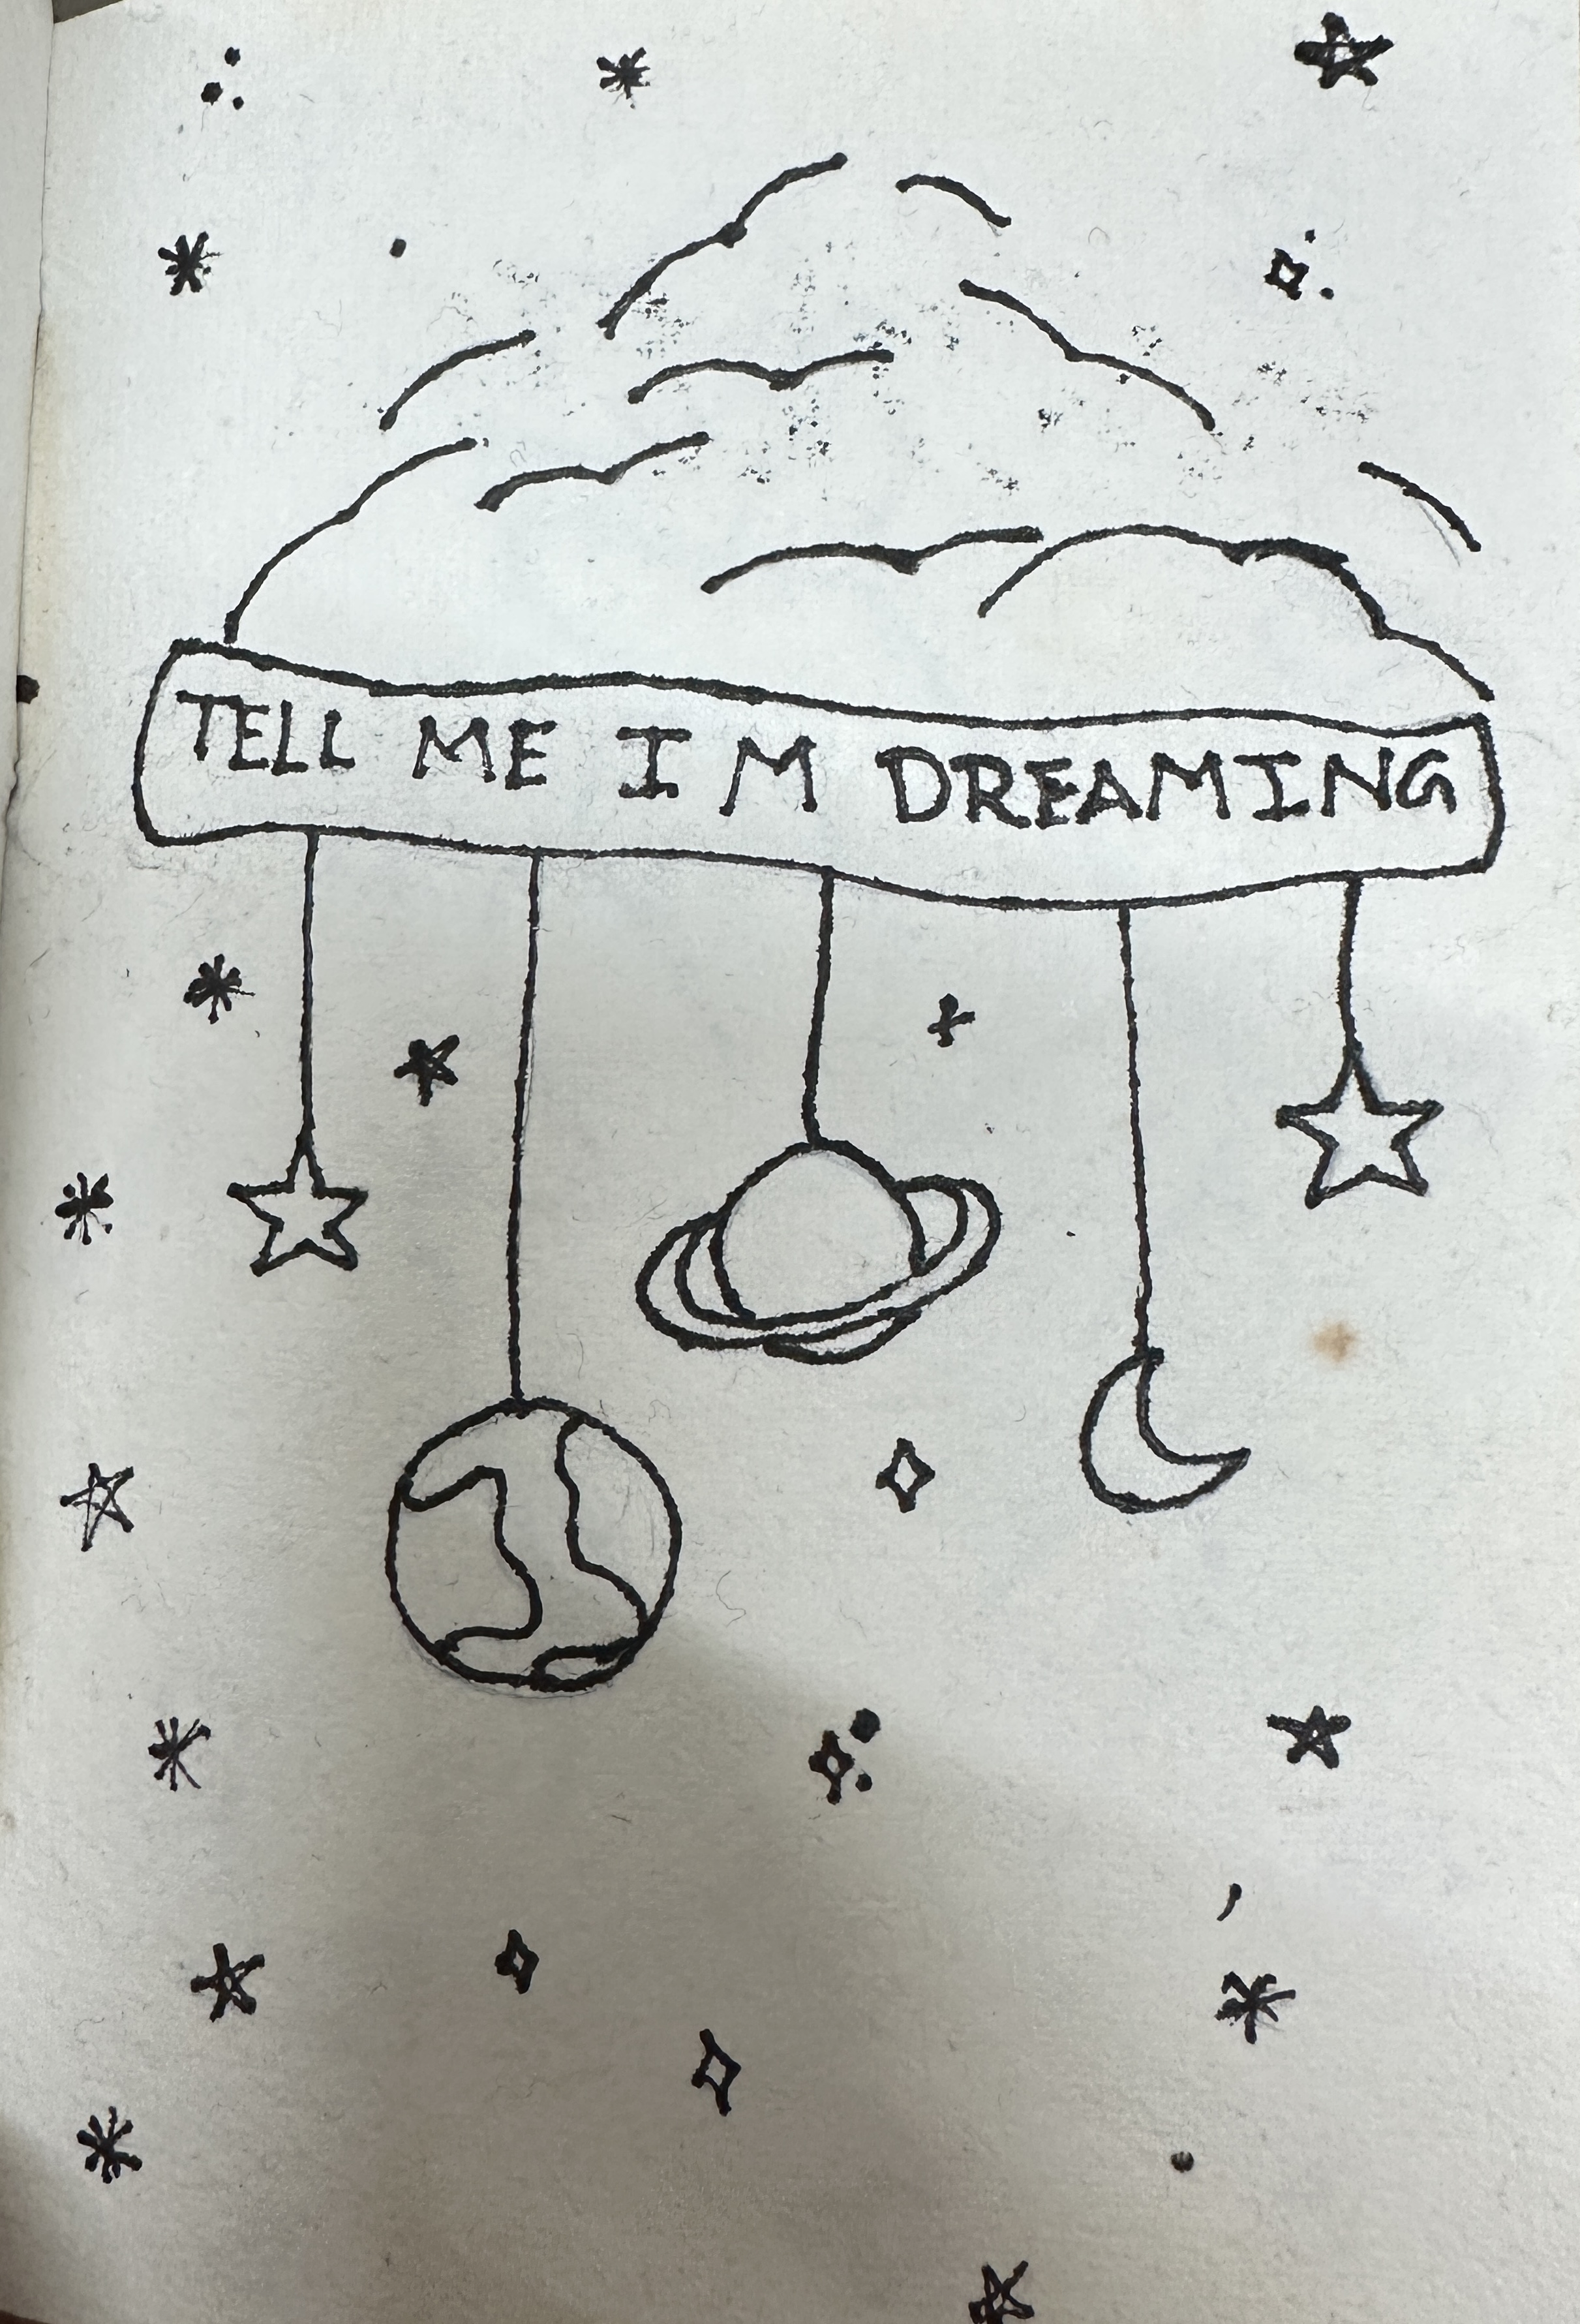 TELL ME I M DREAMING